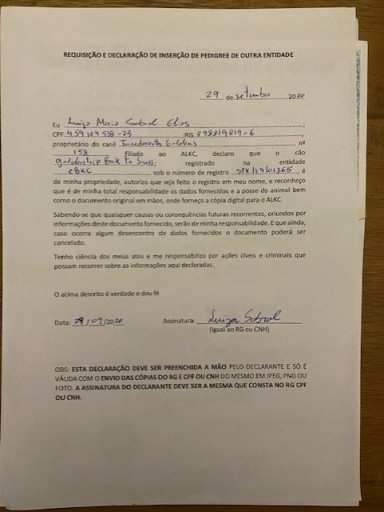 REQUISIÇÃO E DECLARAÇÃO DE INSERÇÃO DE PEDIGREE DE OUTRA ENTIDADE
29 de setembro 2020
Eu Luiza Maria Sobral
CPF 459 RG
proprietário do canil nº
158 Filiado ao ALKC, declaro que o cão
Back to registrado na entidade
CBKC sob o número de registro ; é
de minha propriedade, autorizo que seja feito o registro em meu nome, e reconheço
que é de minha total responsabilidade os dados fornecidos e a posse do animal bem
como o documento original em mãos, onde forneço a cópia digital para o ALKC.
Sabendo-se que quaisquer causas ou consequências futuras recorrentes, oriundos por
informações deste documento fornecido, serão de minha responsabilidade. E que ainda,
caso ocorra algum desencontro de dados fornecidos o documento poderá ser
cancelado.
Tenho ciência dos meus atos e me responsabilizo por ações cíveis e criminais que
possam recorrer sobre as informações aqui declaradas.
O acima descrito é verdade e dou fé
Data: /09/2020 Assinatura: Luiza Sobral
(Igual ao RG ou CNH)
OBS: ESTA DECLARAÇÃO DEVE SER PREENCHIDA A MÃO PELO DECLARANTE E SÓ É
VÁLIDA COM O ENVIO DAS CÓPIAS DO RG E CPF OU CNH DO MESMO EM JPEG, PNG OU
FOTO. A ASSINATURA DO DECLARANTE DEVE SER A MESMA QUE CONSTA NO RG CPF
OU CNH.